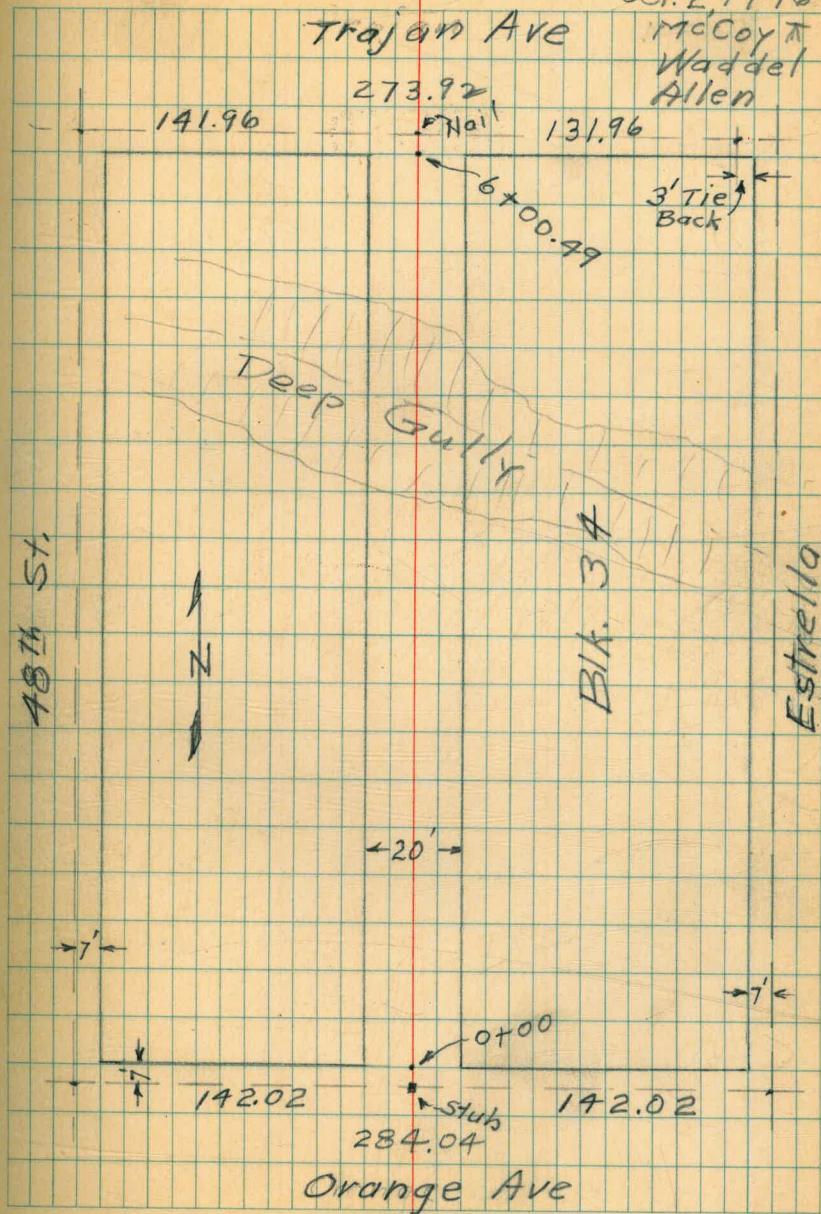 Trajan Ave
McCoy π
Waddel
Allen
273.92
141.96
Nail
131.96
3' Tie
Back
6+00.49
Deep Gully
48th St.
N
Blk. 34
Estrella
20'
7'
7'
0+00
7'
142.02
Stub
142.02
284.04
Orange Ave